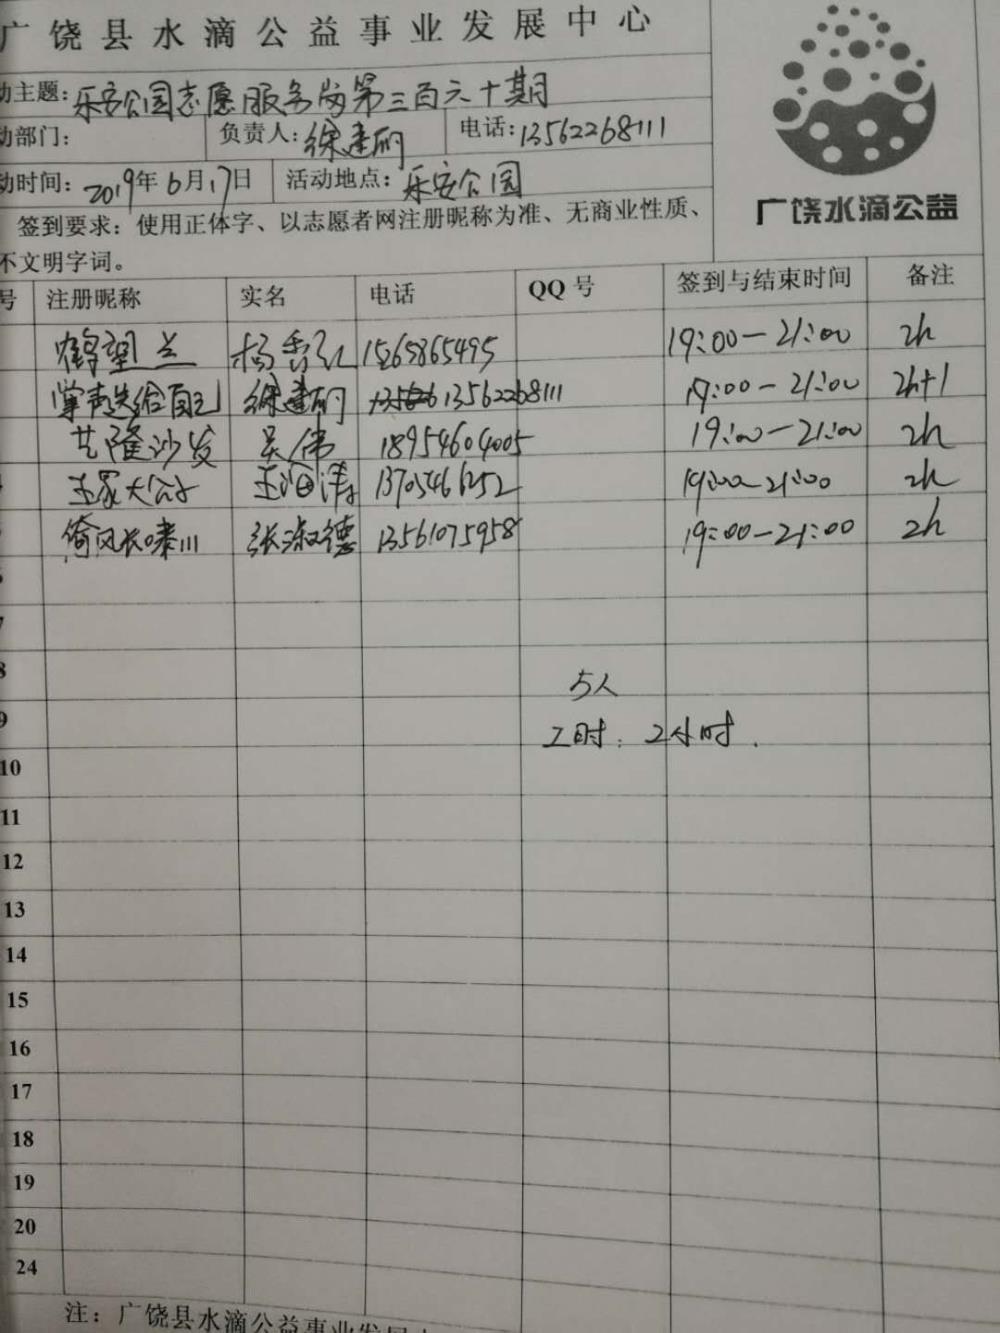 广饶县水滴公益事业发展中心
动主题：乐安公园志愿服务岗第三百六十期
动部门： 负责人：徐建丽 电话：13562268111
动时间：2019年6月17日 活动地点：乐安公园
签到要求：使用正体字、以志愿者网注册昵称为准、无商业性质、
不文明字词。
广饶水滴公益
号 注册昵称 实名 电话 QQ号 签到与结束时间 备注
鹤望兰 杨秀红 15265865495 19:00-21:00 2h
掌声送给自己 徐建丽 13562268111 19:00-21:00 2h+1
艺隆沙发 吴伟 18954604005 19:00-21:00 2h
王家大公子 王海涛 13705466252 19:00-21:00 2h
倚风长啸川 张淑德 13561075958 19:00-21:00 2h
7
8 5人
9 工时：2小时.
10
11
12
13
14
15
16
17
18
19
20
24
注：广饶县水滴公益事业发展中